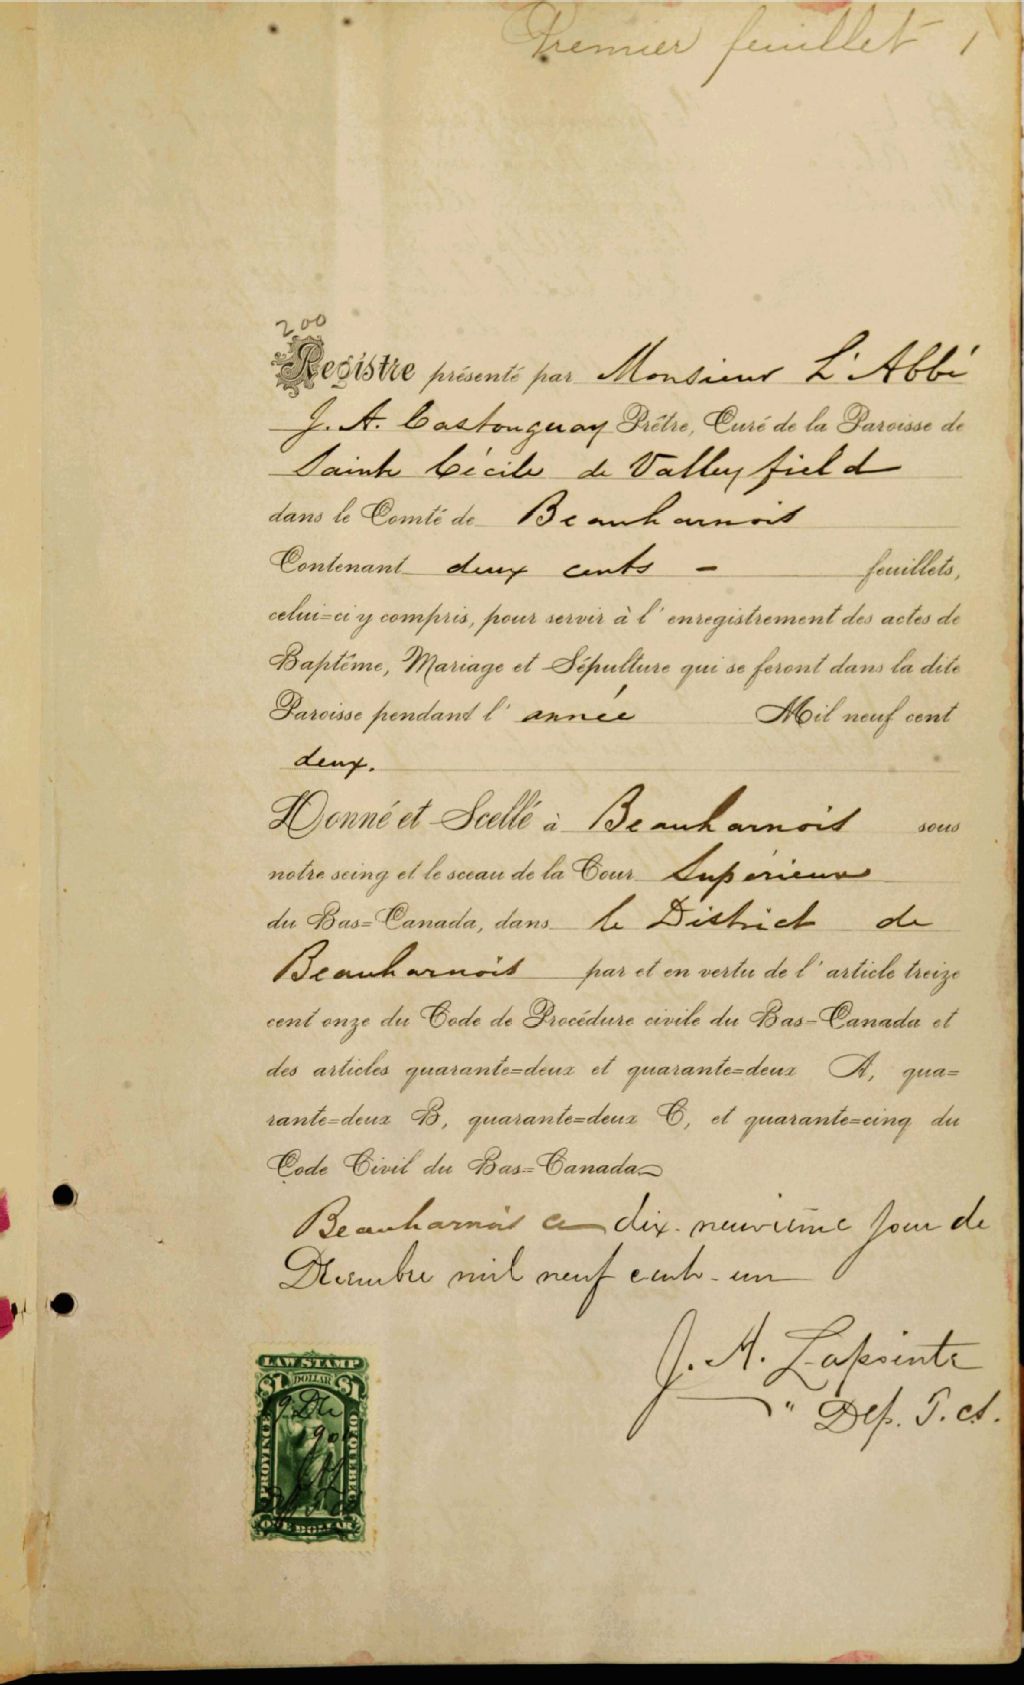 Premier feuillet 1
200
Registre présenté par Monsieur L'Abbé
J. A. Castonguay Prêtre, Curé de la Paroisse de
Sainte Cécile de Valleyfield
dans le Comté de Beauharnois
Contenant deux cents - feuillets,
celui=ci y compris, pour servir à l'enregistrement des actes de
Baptême, Mariage et Sépulture qui se feront dans la dite
Paroisse pendant l'année Mil neuf cent
deux.
Donné et Scellé à Beauharnois sous
notre seing et le sceau de la Cour Supérieure
du Bas=Canada, dans le District de
Beauharnois par et en vertu de l'article treize
cent onze du Code de Procédure civile du Bas-Canada et
des articles quarante=deux et quarante=deux A, qua=
rante=deux B, quarante=deux C, et quarante=cinq du
Code Civil du Bas=Canada
Beauharnois ce dix-neuvième jour de
Décembre mil neuf cent-un
J. A. Lapointe
Dep. P. C. S.
LAW STAMP
$1 DOLLAR $1
PROVINCE OF QUEBEC
19 Dec
ONE DOLLAR